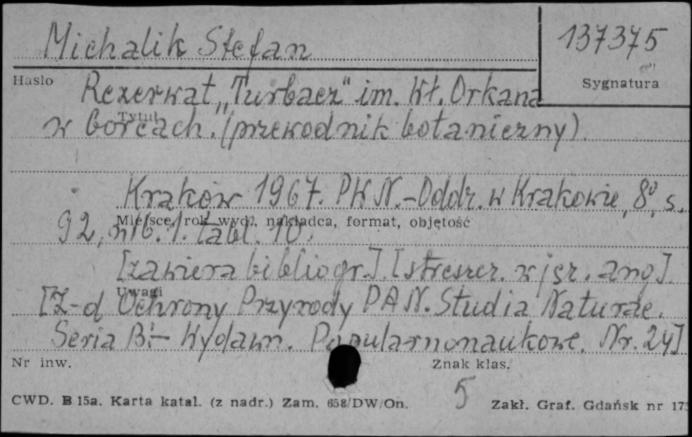 Michalik Stefan
137375
Hasło
Sygnatura
Rezerwat „Turbacz" im. Wł. Orkana
Tytuł
w Gorcach. (przewodnik botaniczny).
Kraków 1967. PWN.-Oddz. w Krakowie, 8°, s.
Miejsce, rok wyd., nakładca, format, objętość
92, nlb. 1. tabl. 10.
[zawiera bibliogr.]. [streszcz. w jęz. ang].
Uwagi
[Z-d Ochrony Przyrody PAN. Studia Naturae.
Seria B:- Wydawn. Popularnonaukowe. Nr. 24]
Nr inw.
Znak klas.
5
CWD. B 15a. Karta katal. (z nadr.) Zam. 658/DW/On.
Zakł. Graf. Gdańsk nr 17